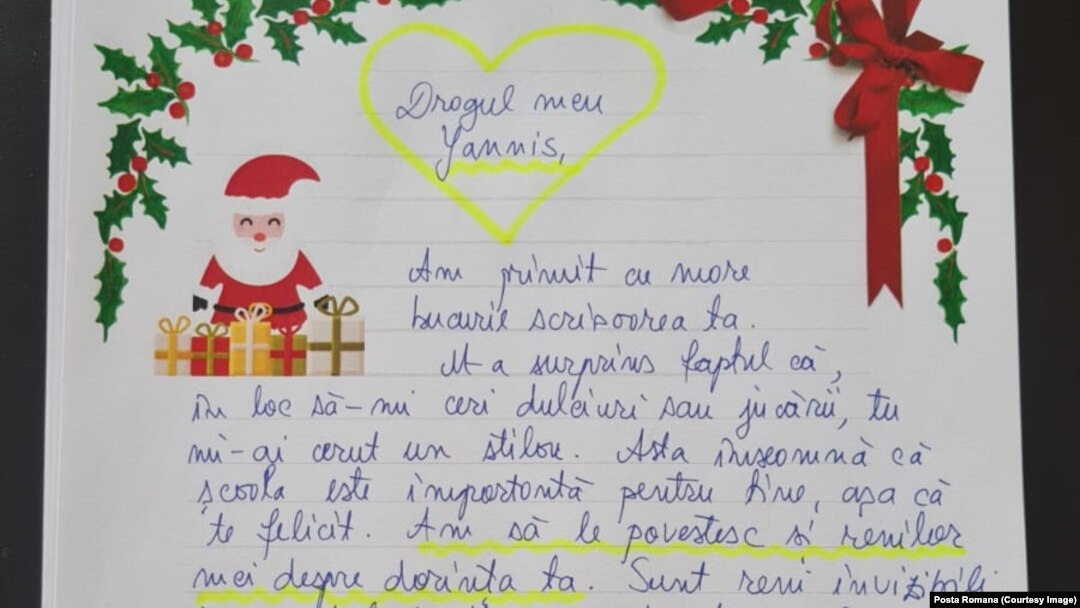 Dragul meu
Yannis,
Am primit cu mare
bucurie scrisoarea ta.
M-a surprins faptul că,
în loc să-mi ceri dulciuri sau jucării, tu
mi-ai cerut un stilou. Asta înseamnă că
școala este importantă pentru tine, așa că
te felicit. Am să le povestesc și renilor
mei despre dorința ta. Sunt reni invizibili
Posta Romana (Courtesy Image)